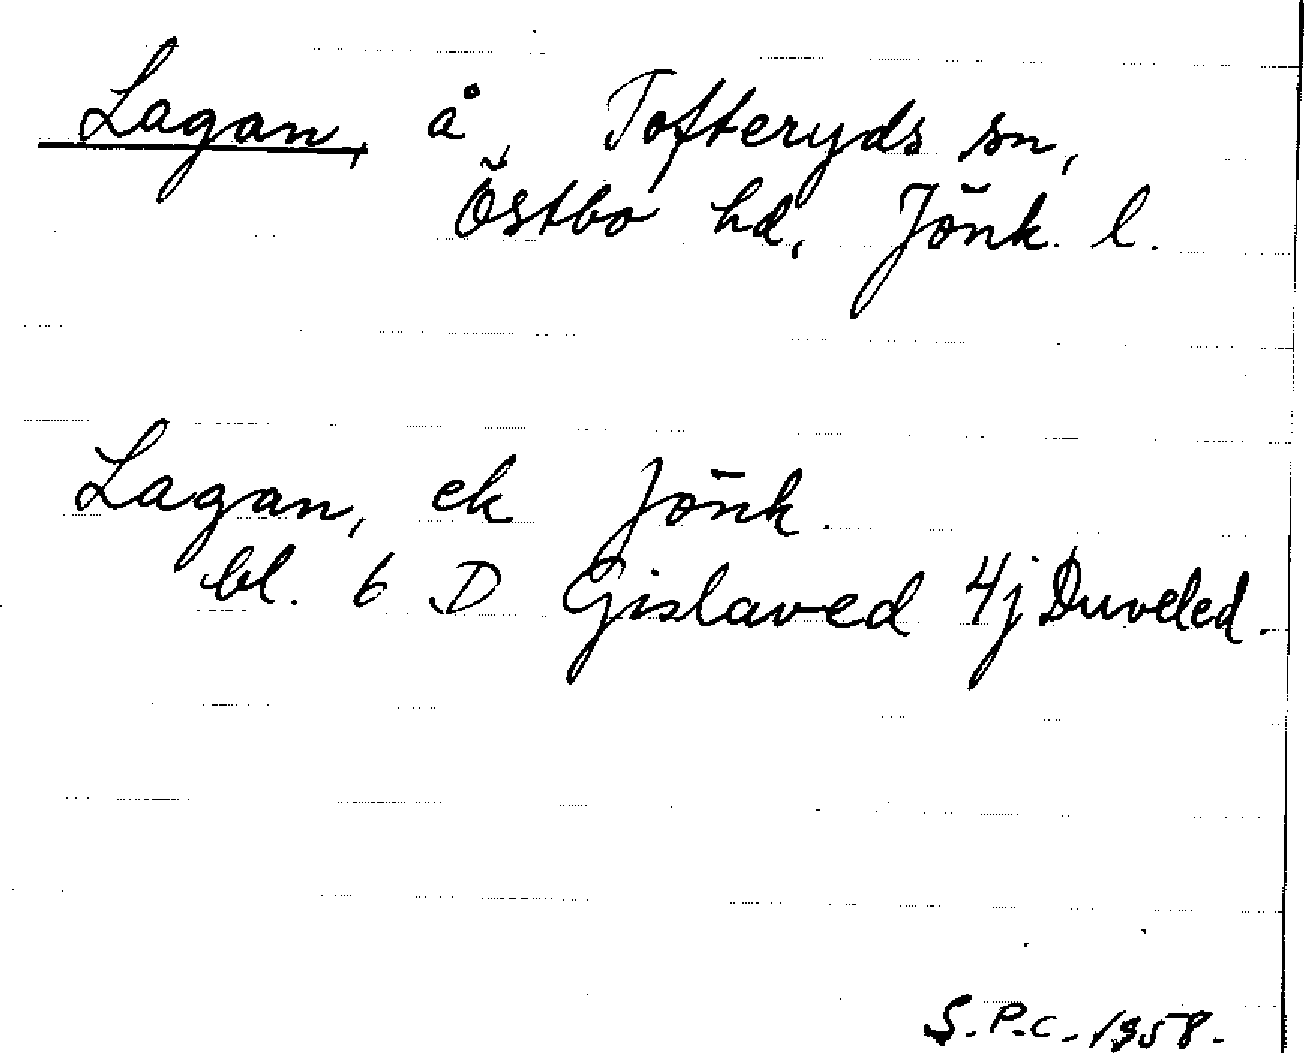 Lagan, å, Tofteryds sn,
Östbo hd, Jönk. l.
Lagan, ek Jönk.
bl. 6 D Gislaved 4j Duveled.
S.P.C. 1958.